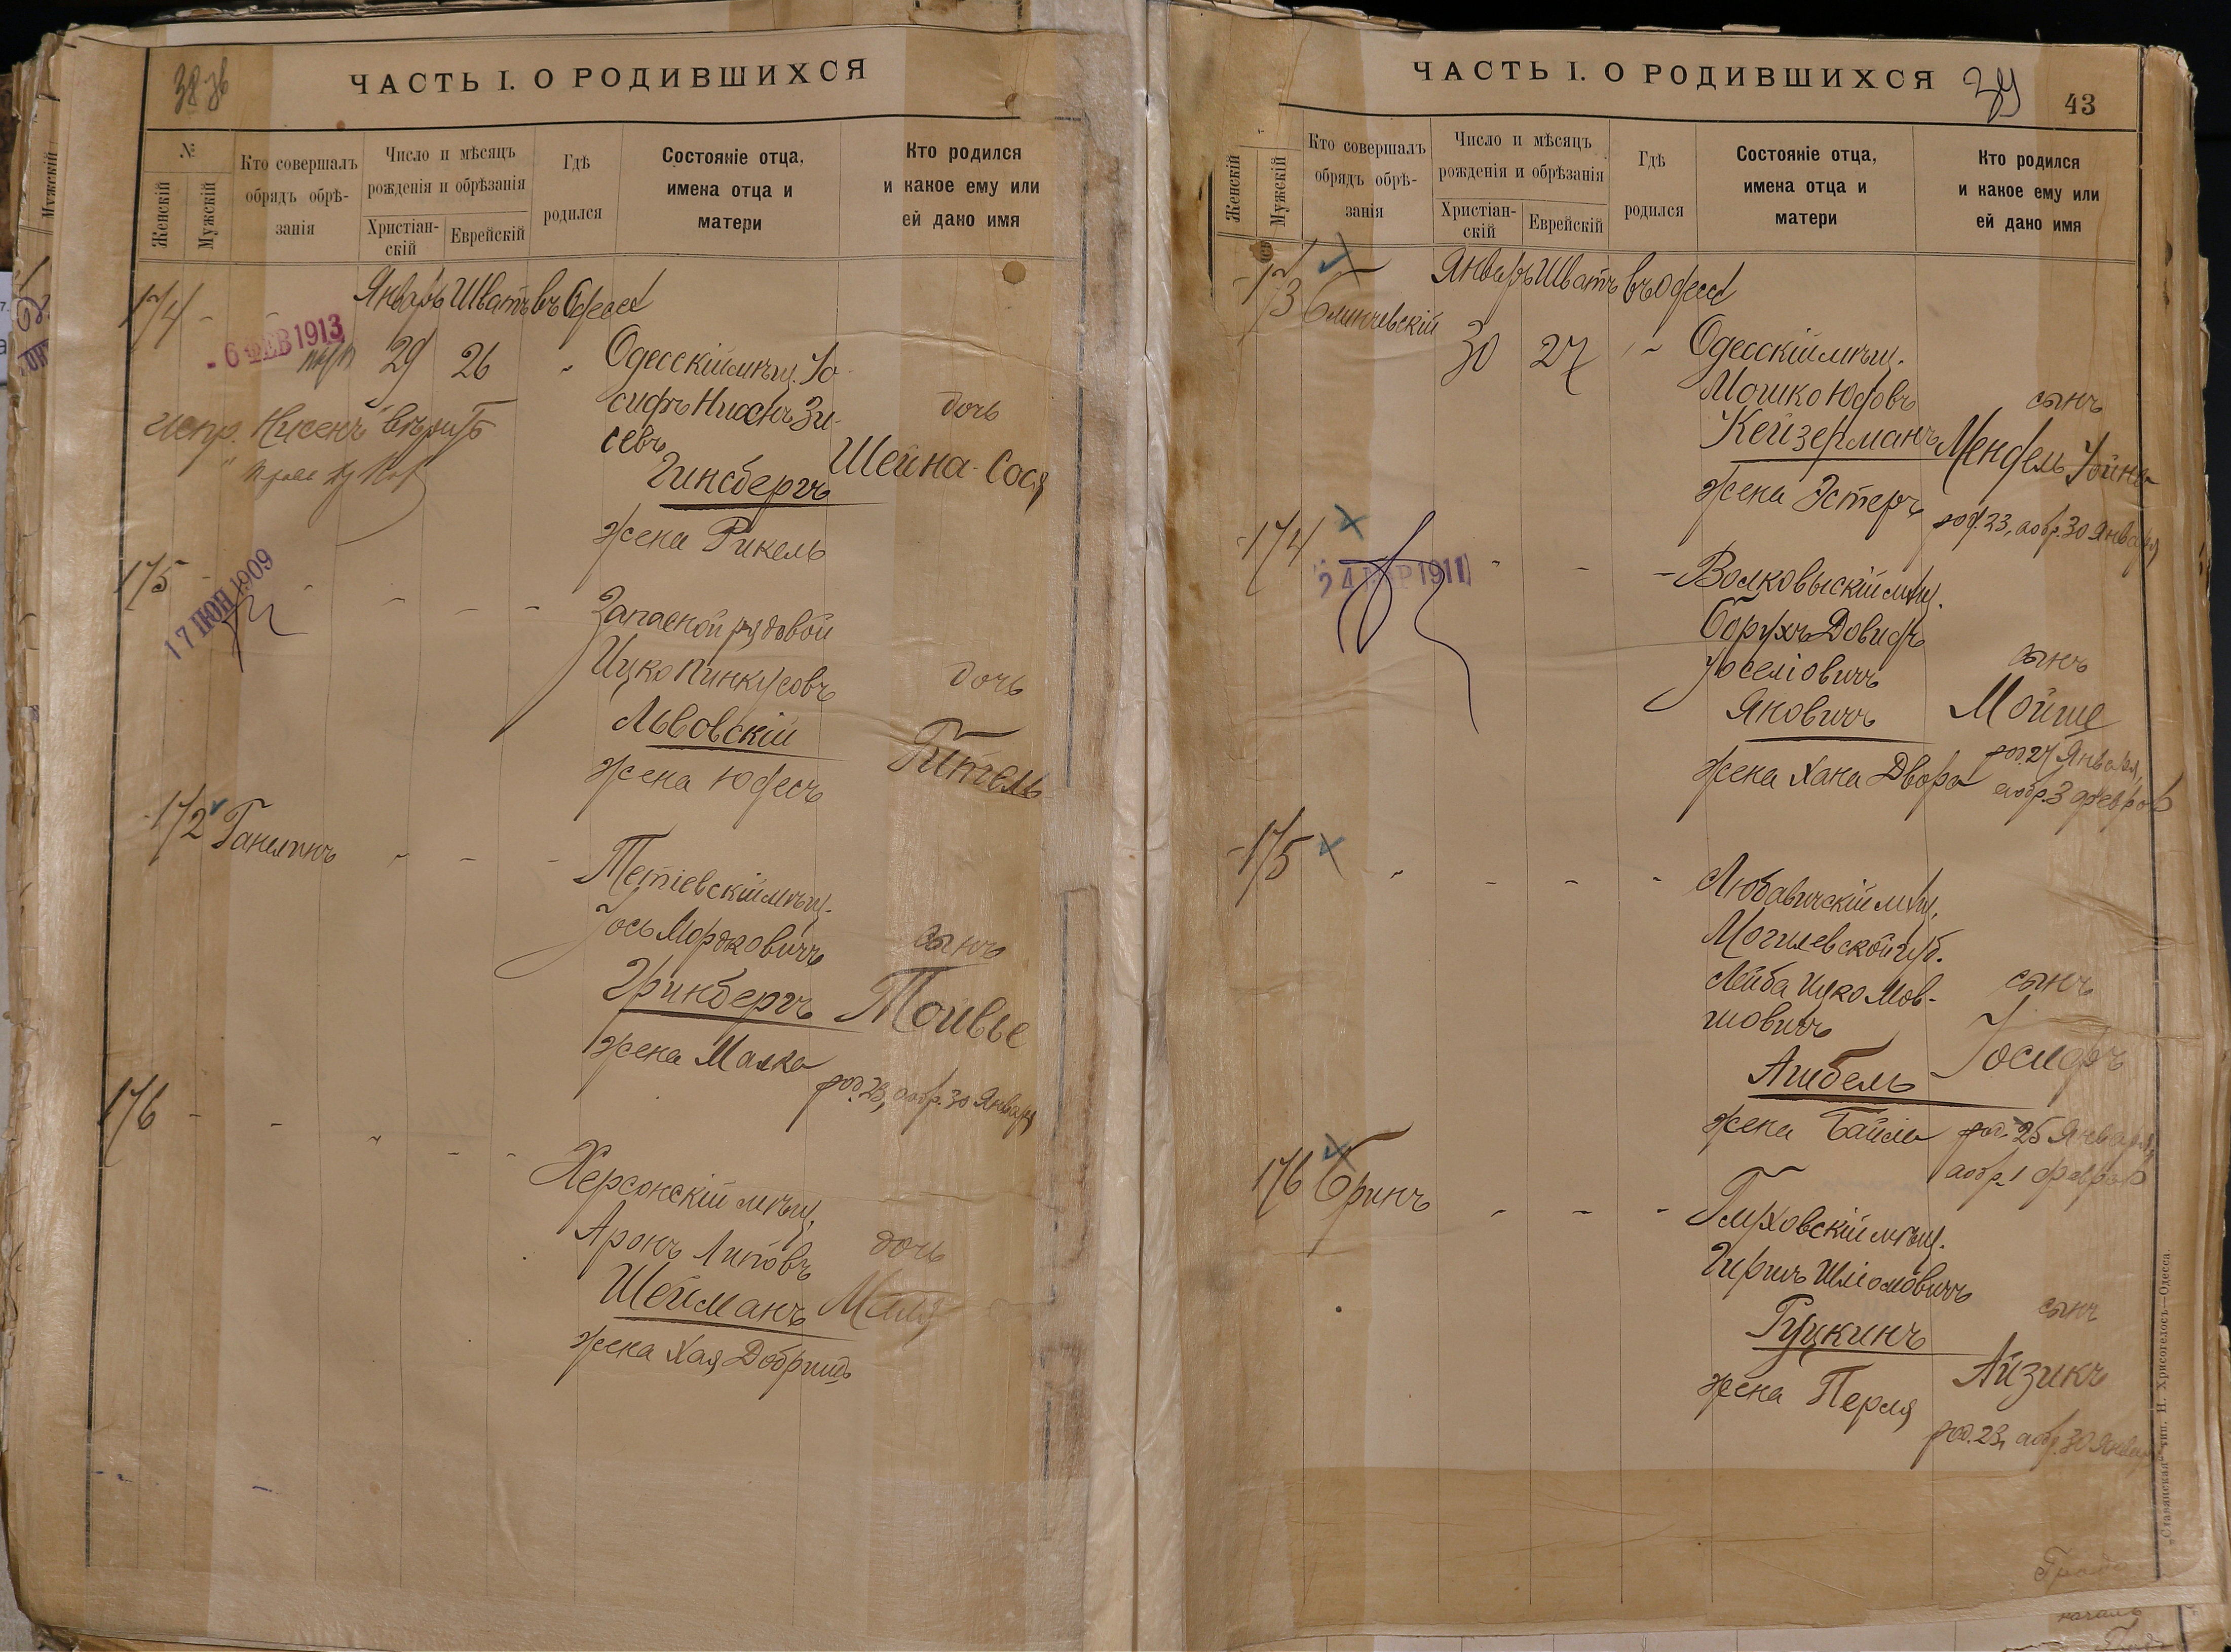 ЧАСТЬ I. О РОДИВШИХСЯ
№
Женскій
Мужскій
Кто совершалъ
обрядъ обрѣ-
занія
Число и мѣсяцъ
рожденія и обрѣзанія
Христіан-
скій
Еврейскій
Гдѣ
родился
Состояніе отца,
имена отца и
матери
Кто родился
и какое ему или
ей дано имя
174
Январь Шватъ въ Одессѣ
- 6 ФЕВ 1913
29 26
Одесскій мѣщ. Іо-
сифъ Нисонъ Зи-
севъ
Гинсбергъ
жена Рикель
дочь
Шейна-Сося
испр. "Нисенъ" вѣрить
175
17 ІЮН 1909
Запасной рядовой
Ицко Пинкусовъ
Львовскій
жена Юдесъ
дочь
Гитель
172 Ганелинъ
Тетіевскій мѣщ.
Іось Мордковичъ
Гринбергъ
жена Малка
сынъ
Тойвье
род. 23, а обр. 30 Января
176
Херсонскій мѣщ.
Аронъ Липовъ
Шейманъ
жена Хая Добришъ
дочь
Маля
ЧАСТЬ I. О РОДИВШИХСЯ
39
43
Женскій
Мужскій
Кто совершалъ
обрядъ обрѣ-
занія
Число и мѣсяцъ
рожденія и обрѣзанія
Христіан-
скій
Еврейскій
Гдѣ
родился
Состояніе отца,
имена отца и
матери
Кто родился
и какое ему или
ей дано имя
173
Январь Шватъ въ Одессѣ
30 27
Одесскій мѣщ.
Мошко Юдовъ
Кейзерманъ
жена Эстеръ
сынъ
Мендель Іойна
род. 23, а обр. 30 Января
174
Волковыскій мѣщ.
Борухъ Довидъ
Іоселіовичъ
Яновичъ
жена Хана Двора
сынъ
Мойше
род. 27 Января,
а обр. 3 Февраля
175
Любавичскій мѣщ.
Могилевской губ.
Лейба Ицко Мов-
шовичъ
Агибель
жена Бейля
сынъ
Іосифъ
род. 25 Января,
а обр. 1 Февраля
176 Бринъ
Глуховскій мѣщ.
Гиршъ Шліомовичъ
Гуцкинъ
жена Перля
сынъ
Айзикъ
род. 23, а обр. 30 Января
„Славянская“ тип. Н. Хрисогелосъ—Одесса.